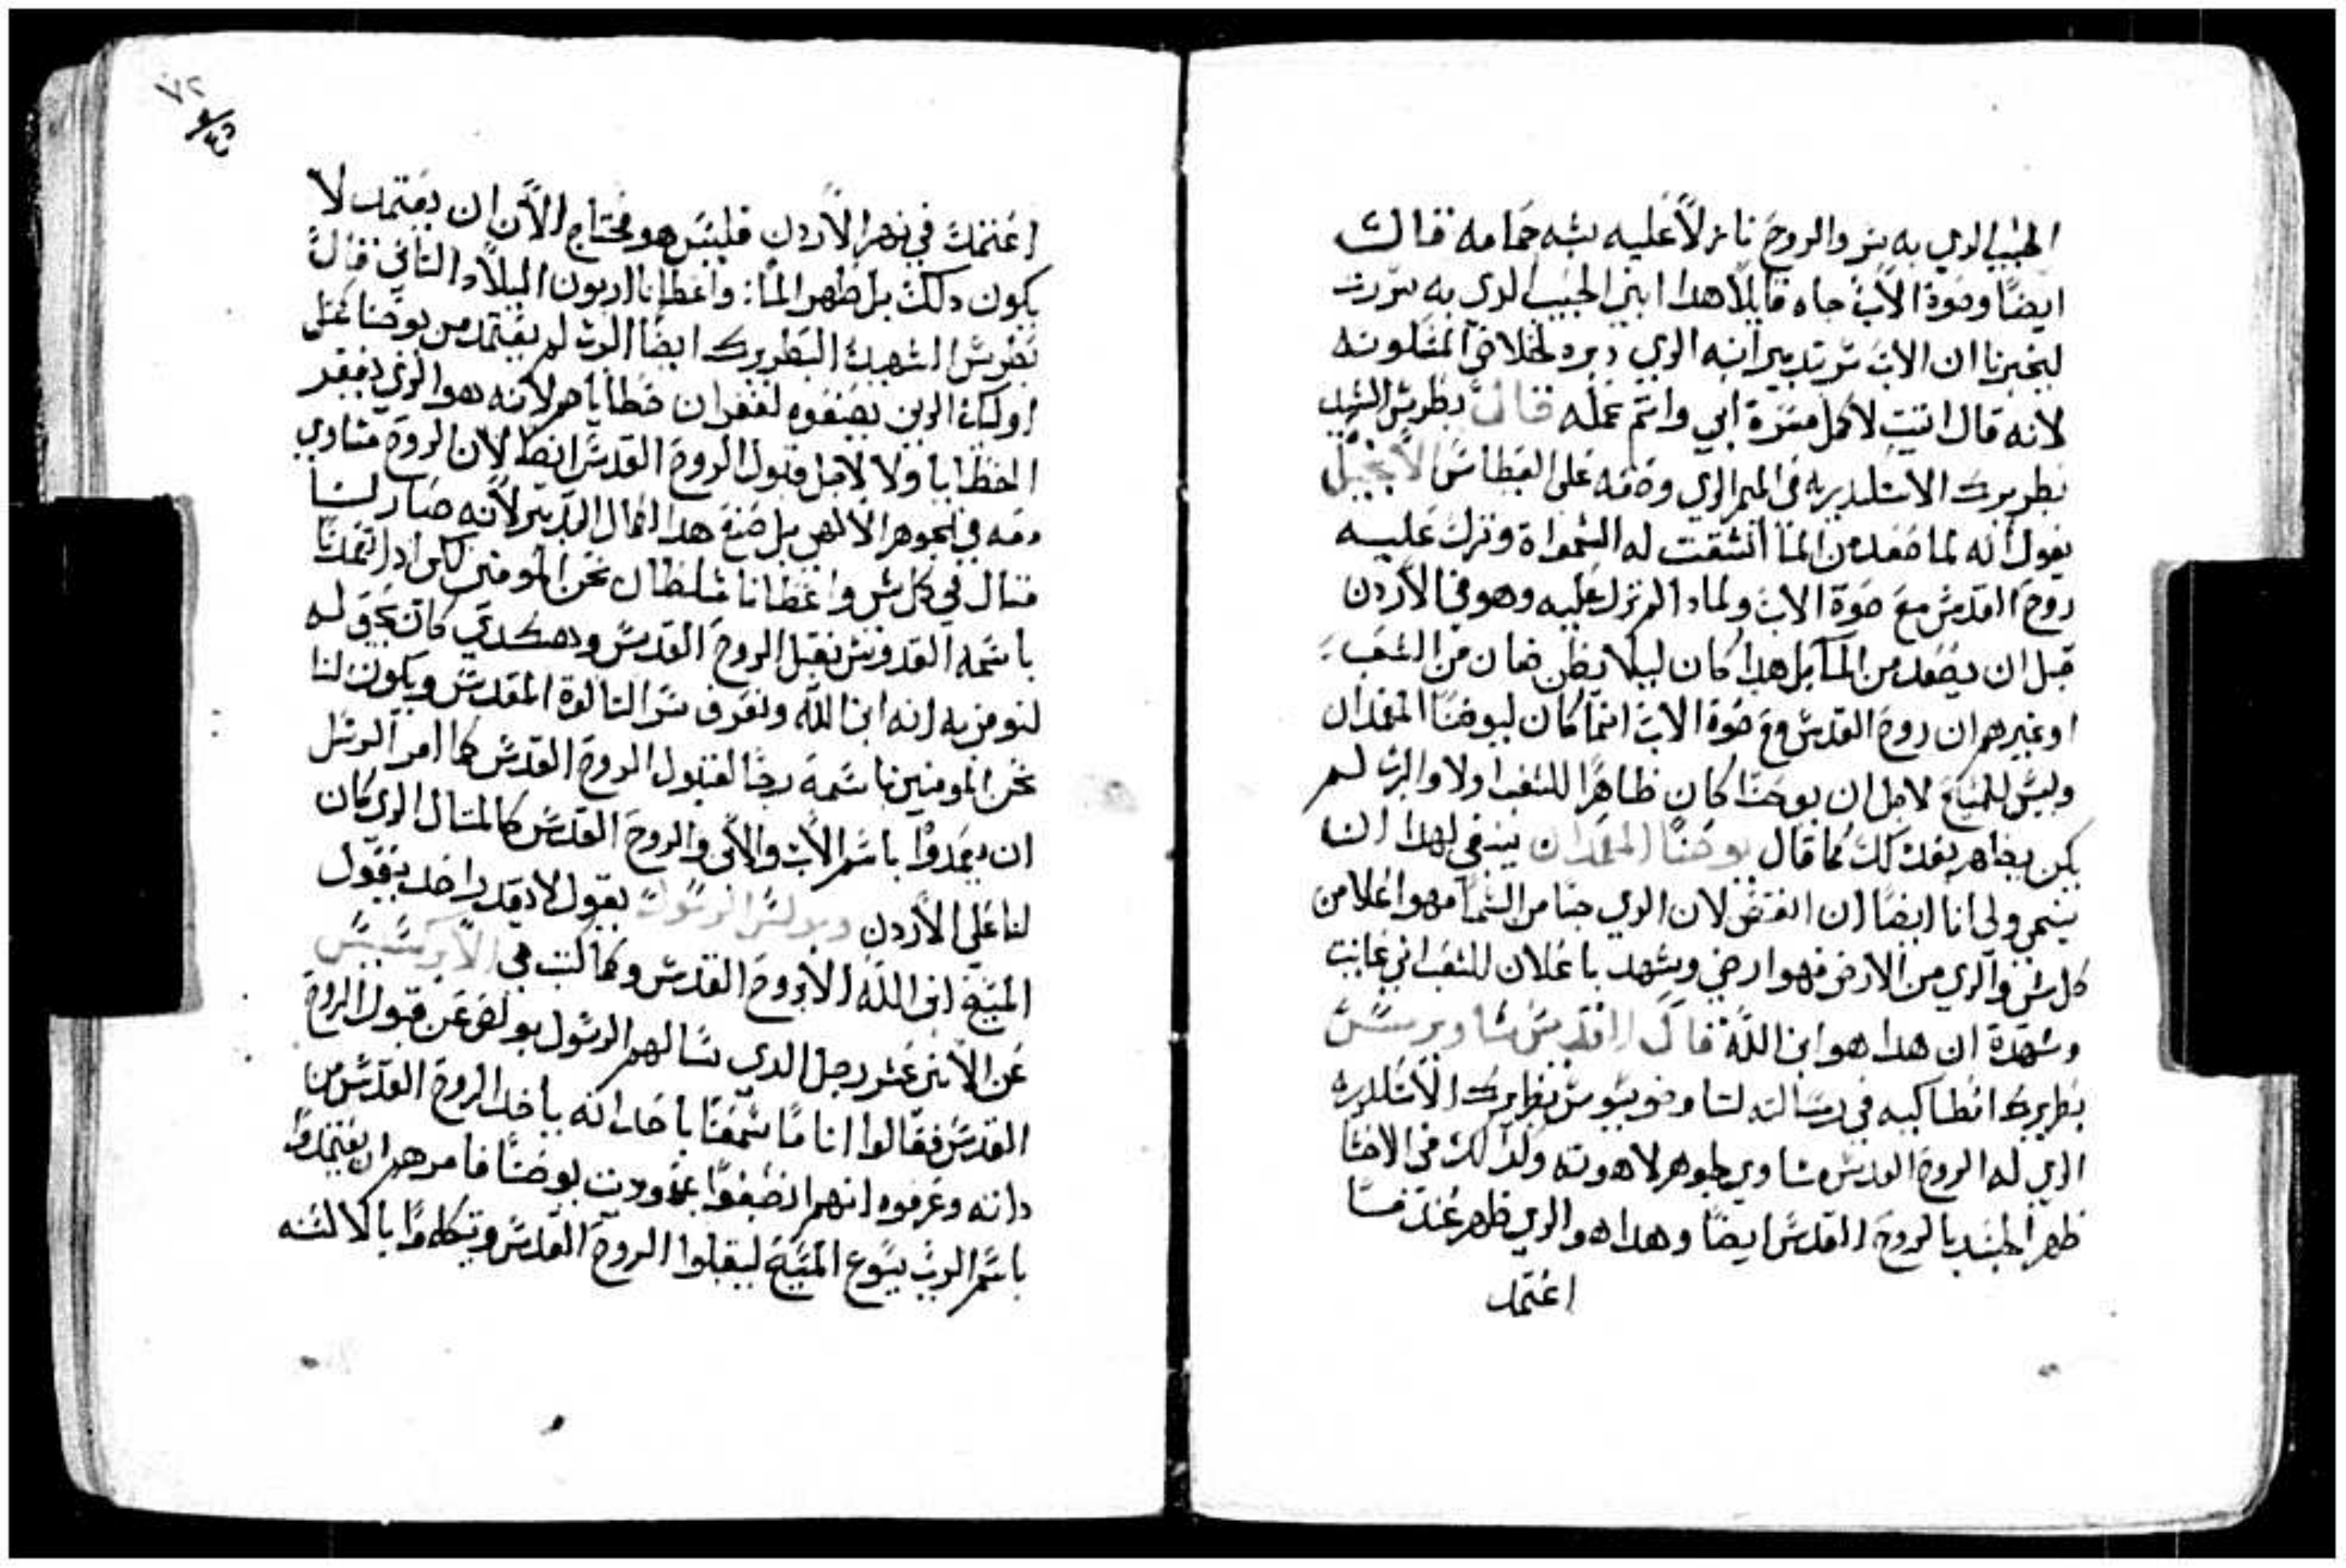 الحبيب الدي به سر والروح نازلاً عليه بشبه حمامه قالت
ايضًا وصوة الاب جاه قايلاً هدا ابني الحبيب الدي به سررت
ليخبرنا ان الاب سر بتدبير ابنه الدي دبره لخلاص المسكونه
لانه قال اتيت لاكمل مسرة ابي واتم عمله قال بطرس الشهيد
بطريرك الاسكندريه في الميمر الدي وضعه على الغطاس الانجيل
يقول انه لما صعد من الما انشقت له السمواة ونزل عليه
روح القدس مع صوة الاب ولمادا لم نزل عليه وهو في الاردن
قبل ان يصعد من الما بل هدا كان ليلا يظن ضان من الشعب
او غيرهم ان روح القدس مع صوة الاب انما كان ليوحنا المعمدان
وليس للمسيح لاجل ان يوحنا كان ظاهرًا للشعب اولا والرب لم
يكن يظاهر بعد دلك كما قال يوحنا المعمدان ينبغي لهدا ان
ينمي ولي انا ايضًا ان انقض لان الدي جا من السما هو اعلا من
كل شي والدي من الارض فهو ارضي وشهد باعلان للشعب اني عاينت
وشهدة ان هدا هو ابن الله قال القديس ساويرسس
بطريرك انطاكيه في رسالته لتاوضوسيوس بطريرك الاسكندريه
الدي له الروح القدس مساوي لجوهر لاهوته ولدلك في الاخشا
ظهر الجسد بالروح القدس ايضًا وهدا هو الدي ظهر عندمسا
اعتمد
٧٢
اعتمد في نهر الاردن فليس هو محتاج الان ان يعتمد لا
يكون دلك بل طهر الما: واعطانا اربون الميلاد التاني قال
بطرس الشهيد البطريرك ايضًا الرب لم يعتمد من يوحنا كمثل
اوليك الدين يصبغوه لغفران خطاياهم لانه هو الدي يغفر
الخطايا ولا لاجل قبول الروح القدس ايضا لان الروح مساوي
معه في الجوهر الالهي بل صنع هدا لكمال التدبير لانه صار لنا
متال في كل شي واعطانا سلطان نحن المومنين لكي ادا تعمدنا
باسمه القدوس نقبل الروح القدس وهكدي كان يحق له
لنومن به انه ابن الله ونعرف سر التالوة المقدس ويكون لنا
نحن المومنين باسمه رجا لقبول الروح القدس كما امر الرسل
ان يعمدوا باسم الاب والابن والروح القدس كالمتال الدي كان
لنا على الاردن وبولس الرسول يقول لا يقدر احد يقول
المسيح ابن الله الا بروح القدس وكما كتب في الابركسيس
عن الاتني عشر رجل الدي سالهم الرسول بولص عن قبول الروح
القدس فقالوا انا ما سمعنا باحد انه ياخد الروح القدس من
داته وعرفوه انهم انصبغوا بمعمودية يوحنا فامرهم ان يعتمدوا
باسم الرب يسوع المسيح ليقبلوا الروح القدس وتكلموا بالالسنه